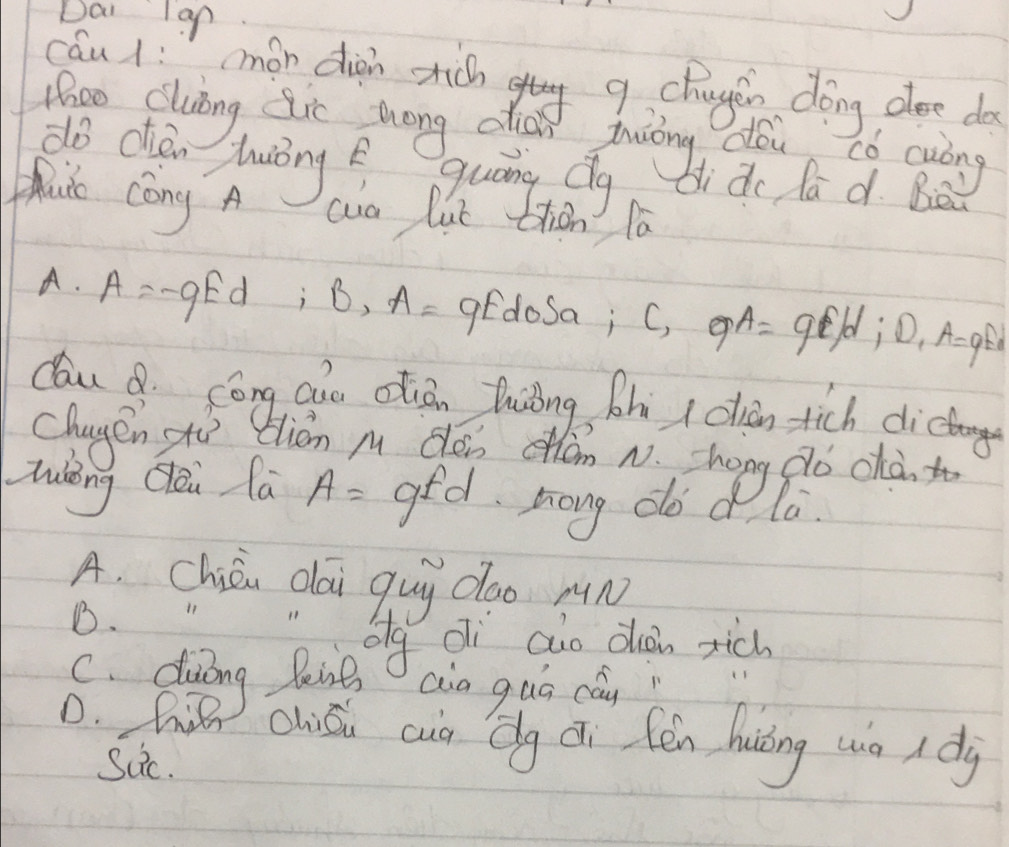 Bài Tập.
Câu 1: một điện tích q chuyển động dọc
theo đường sức trong điện trường đều có cường
độ điện trường E quãng đg đi đc là d. Biểu
thức công A của lực điện là
A. A = -qEd ; B, A = qEdosa ; C, A = qE/d ; D, A = qEd
Câu 2. Công của điện trường khi 1 điện tích di
chuyển từ điểm M đến điểm N. trong đó điện
trường đều là A = qEd. trong đó d là.
A. Chiều dài quỹ đạo MN
B. " " đg đi của điện tích
C. đường kính của quả cầu " "
D. hình chiếu của đg đi lên hướng của 1 đg
Sức.